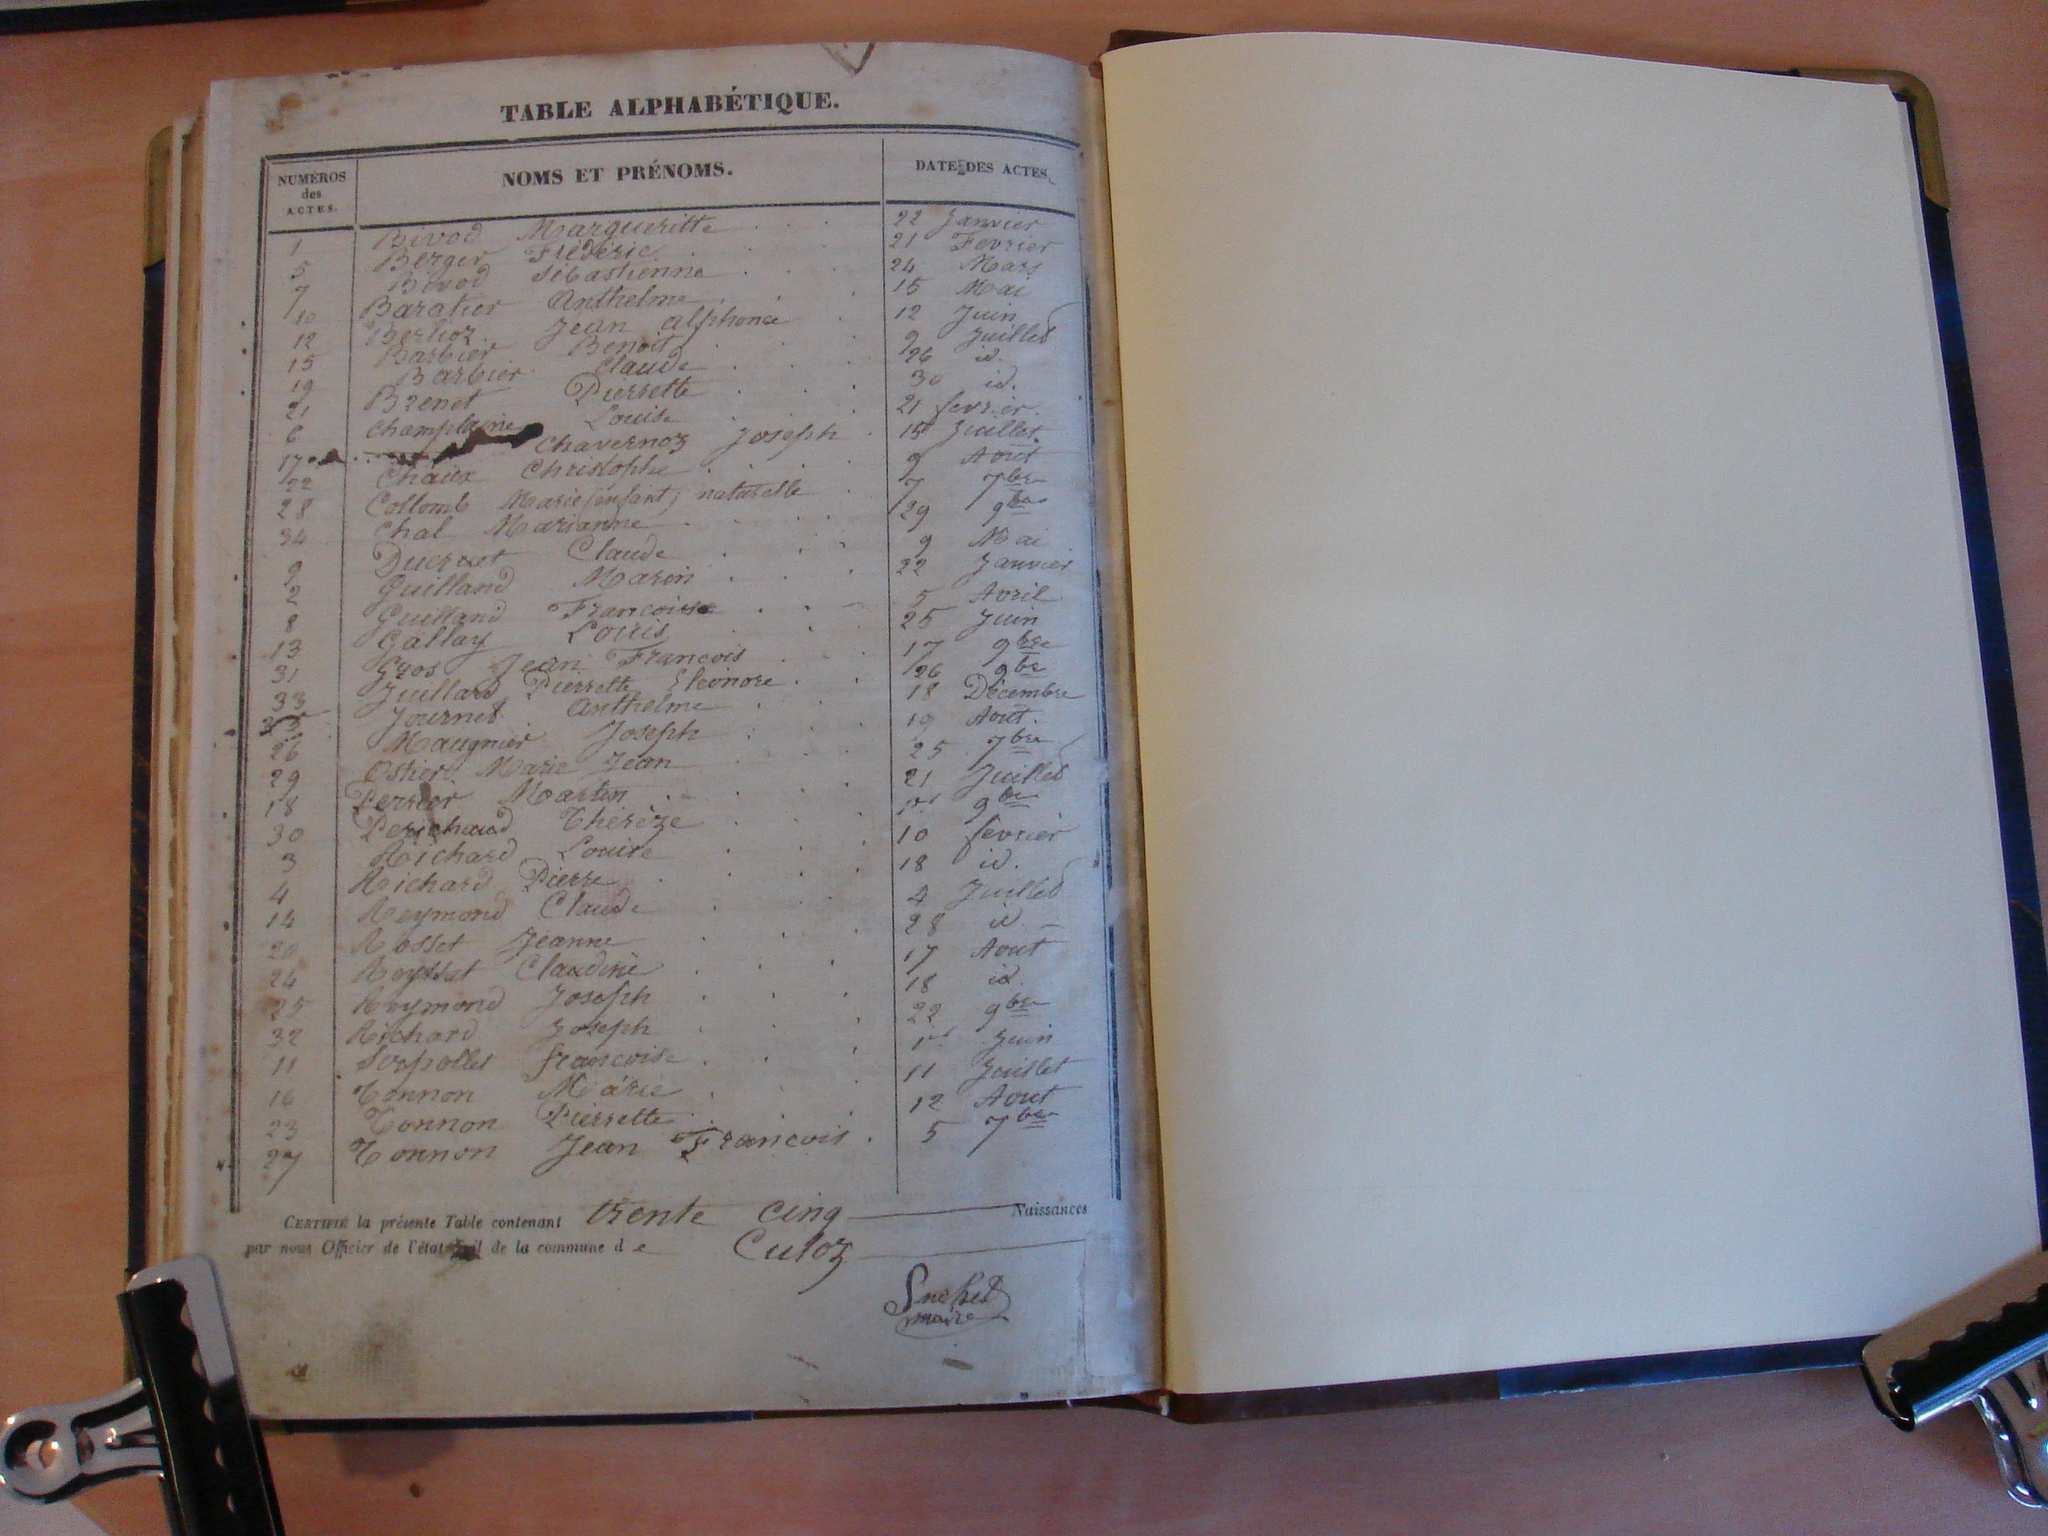 TABLE ALPHABÉTIQUE.
NUMÉROS des ACTES. NOMS ET PRÉNOMS. DATE DES ACTES.
1 Bévod Margueritte 22 Janvier
5 Berger Frédéric 21 Fevrier
7 Bévod Sébastienne 24 Mars
10 Baratier Anthelme 15 Mai
12 Berlioz Jean alphonce 12 Juin
15 Barbier Benoit 9 Juillet
19 Barbier Claude 26 id.
21 Brenet Pierrette 30 id.
6 Champlagne Louise 21 fevrier.
17 Chavernoz Joseph 15 Juillet
22 Chaux Christophe 9 Aout
28 Collomb Marie (enfant) naturelle 7 7bre
34 Chal Marianne 29 9bre
9 Ducruet Claude 9 Mai
2 Guilland Marin 22 Janvier
8 Guilland Francoise 5 Avril
13 Gallay Louis 25 Juin
31 Gros Jean Francois 17 9bre
33 Juilland Pierrette Eléonore 26 9bre
35 Journet Anthelme 18 Décembre
26 Maugnier Joseph 19 Aout.
29 Ostier Marie Jean 25 7bre
18 Perrier Martin 21 Juillet
30 Perichaud Thérèze 1er 9bre
3 Richard Louise 10 fevrier
4 Richard Pierre 18 id.
14 Reymond Claude 4 Juillet
20 Rosset Jeanne 28 id
24 Reyssat Claudine 17 Aout
25 Reymond Joseph 18 id.
32 Richard Joseph 22 9bre
11 Serpollet francoise 1er Juin
16 Tonnon Marie 11 Juillet
23 Tonnon Pierrette 12 Aout
27 Tonnon Jean Francois 5 7bre
CERTIFIÉ la présente Table contenant trente cinq Naissances
par nous Officier de l'état civil de la commune de Culoz
maire